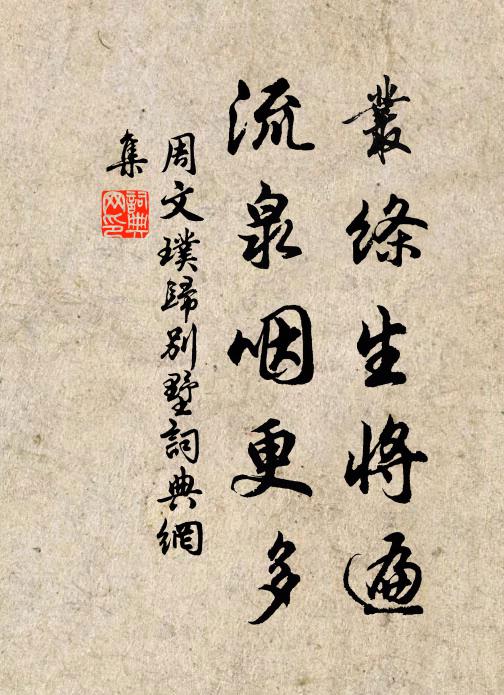 叢條生將遍
流泉咽更多
周文璞歸別墅詞典網
集
詞典
网印